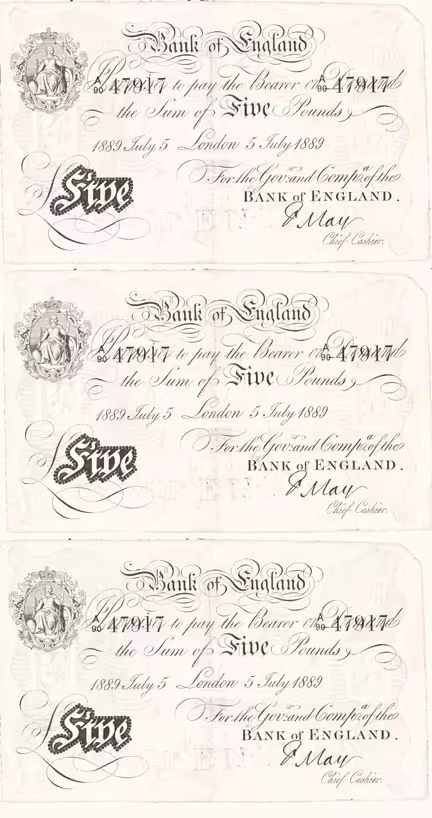 Bank of England
A/90 47917 to pay the Bearer on Demand A/90 47917
the Sum of Five Pounds
1889 July 5 London 5 July 1889
For the Govr. and Compa. of the
BANK of ENGLAND.
Five
F May
Chief Cashier.
Bank of England
A/90 47917 to pay the Bearer on Demand A/90 47917
the Sum of Five Pounds
1889 July 5 London 5 July 1889
For the Govr. and Compa. of the
BANK of ENGLAND.
Five
F May
Chief Cashier.
Bank of England
A/90 47917 to pay the Bearer on Demand A/90 47917
the Sum of Five Pounds
1889 July 5 London 5 July 1889
For the Govr. and Compa. of the
BANK of ENGLAND.
Five
F May
Chief Cashier.